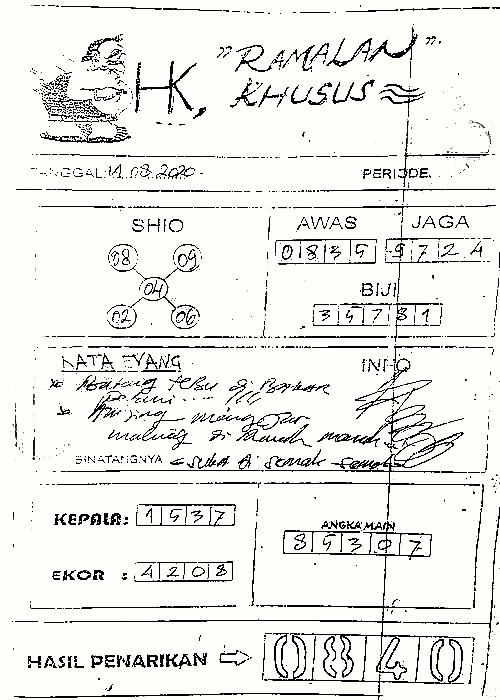 HK, "RAMALAN".
KHUSUS
TANGGAL: 14.08.2020-
PERIODE.
SHIO
08 09
04
02 06
AWAS JAGA
0 8 3 5 9 7 2 4
BIJI
3 5 7 8 1
KATA EYANG
INFO
* Batang tebu di Bakar
petani....
*
maling di rumah
BINATANGNYA suka di semak-semak
KEPALA: 1 5 3 7
EKOR : 4 2 0 8
ANGKA MAIN
8 5 3 0 7
HASIL PENARIKAN 0 8 4 0